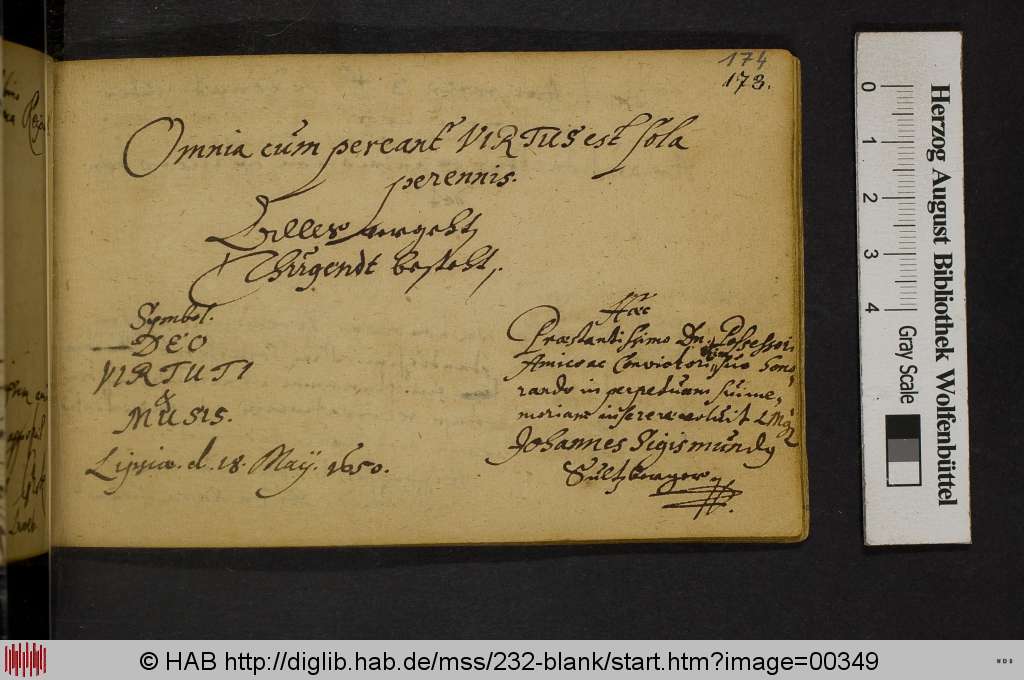 174
173.
Omnia cum pereant VIRTUS est sola
perennis.
Alles vergeht,
Thugendt besteht.
Symbol.
DEO
VIRTUTI
&
MUSIS.
Lipsiæ. d. 18. Maÿ. 1650.
Hæc
Præstantissimo Dn. Possessori,
Amico ac Convictori suo hono-
rando in perpetuam sui me-
moriam inserere voluit
Johannes Sigismundg
Sultzberger
0 1 2 3 4
Gray Scale
Herzog August Bibliothek Wolfenbüttel
© HAB http://diglib.hab.de/mss/232-blank/start.htm?image=00349